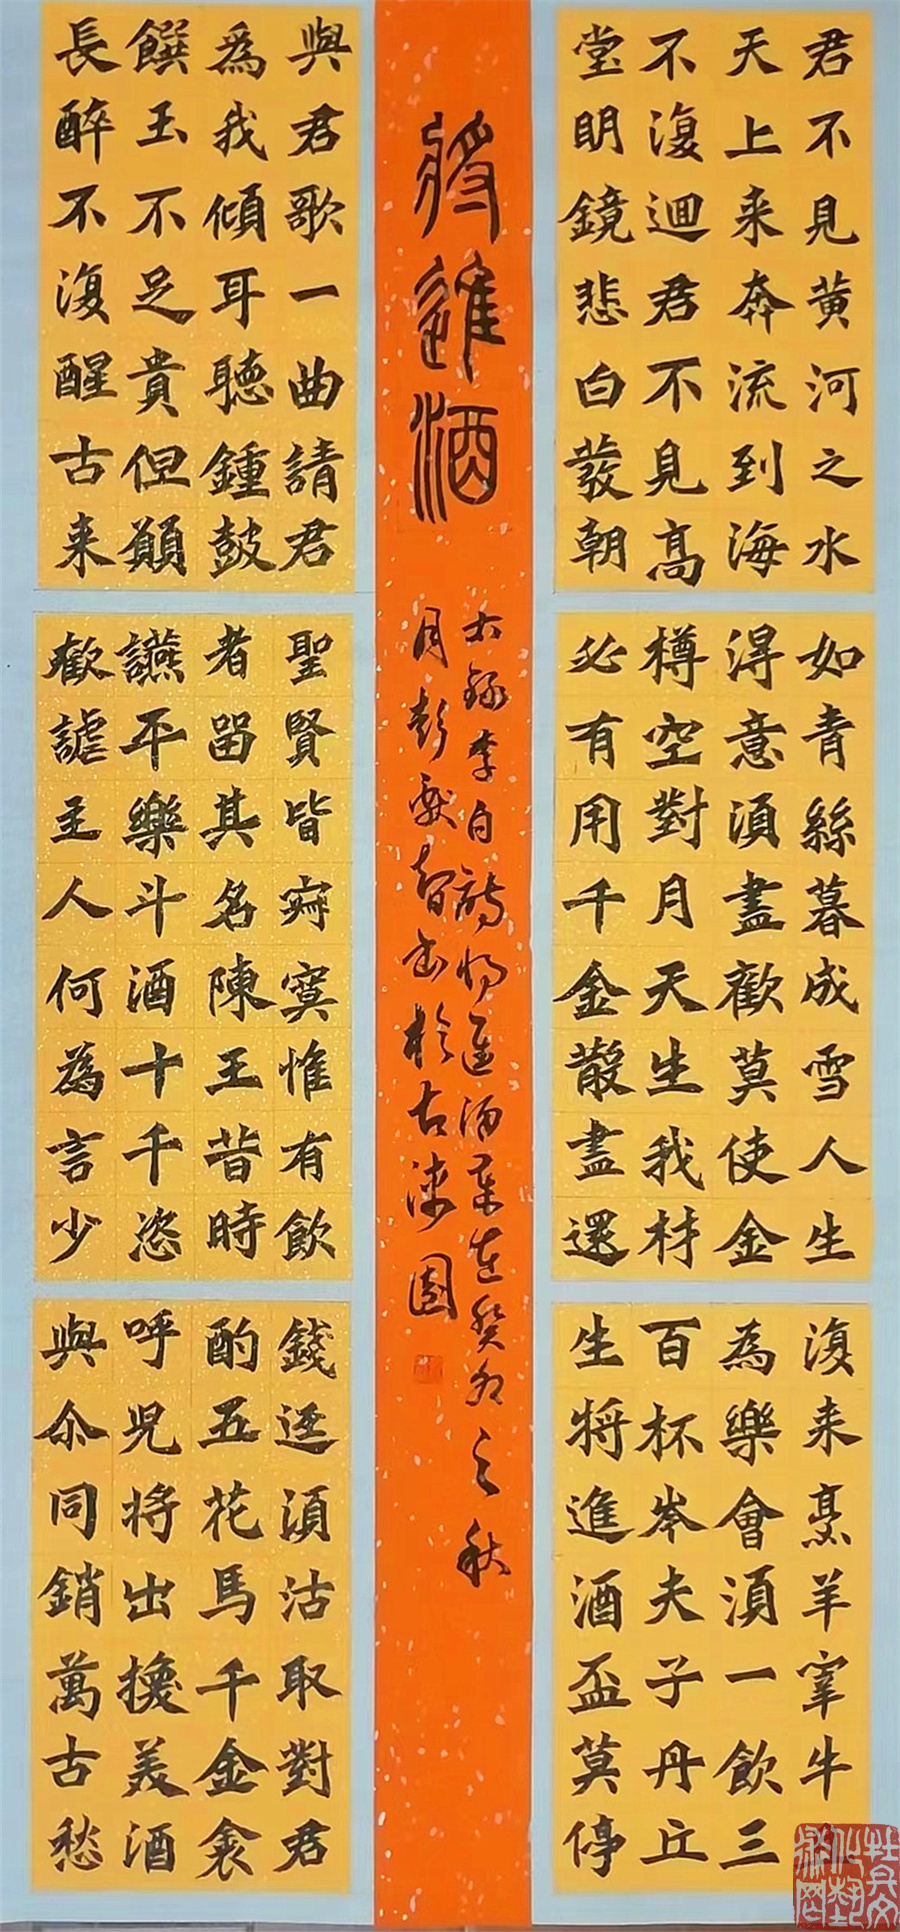 君不見黄河之水
天上来奔流到海
不復迴君不見高
堂明鏡悲白發朝
如青絲暮成雪人生
得意須盡歡莫使金
樽空對月天生我材
必有用千金散盡還
復来烹羊宰牛且
為樂會須一飲三
百杯岑夫子丹丘
生將進酒盃莫停
將進酒
右錄李白詩將進酒歲在癸卯之秋
月彭書於古園
與君歌一曲請君
為我傾耳聽鍾鼓
饌玉不足貴但願
長醉不復醒古来
聖賢皆寂寞惟有飲
者留其名陳王昔時
讌平樂斗酒十千恣
歡謔主人何為言少
錢逕須沽取對君
酌五花馬千金裘
呼児將出換美酒
與尒同銷萬古愁